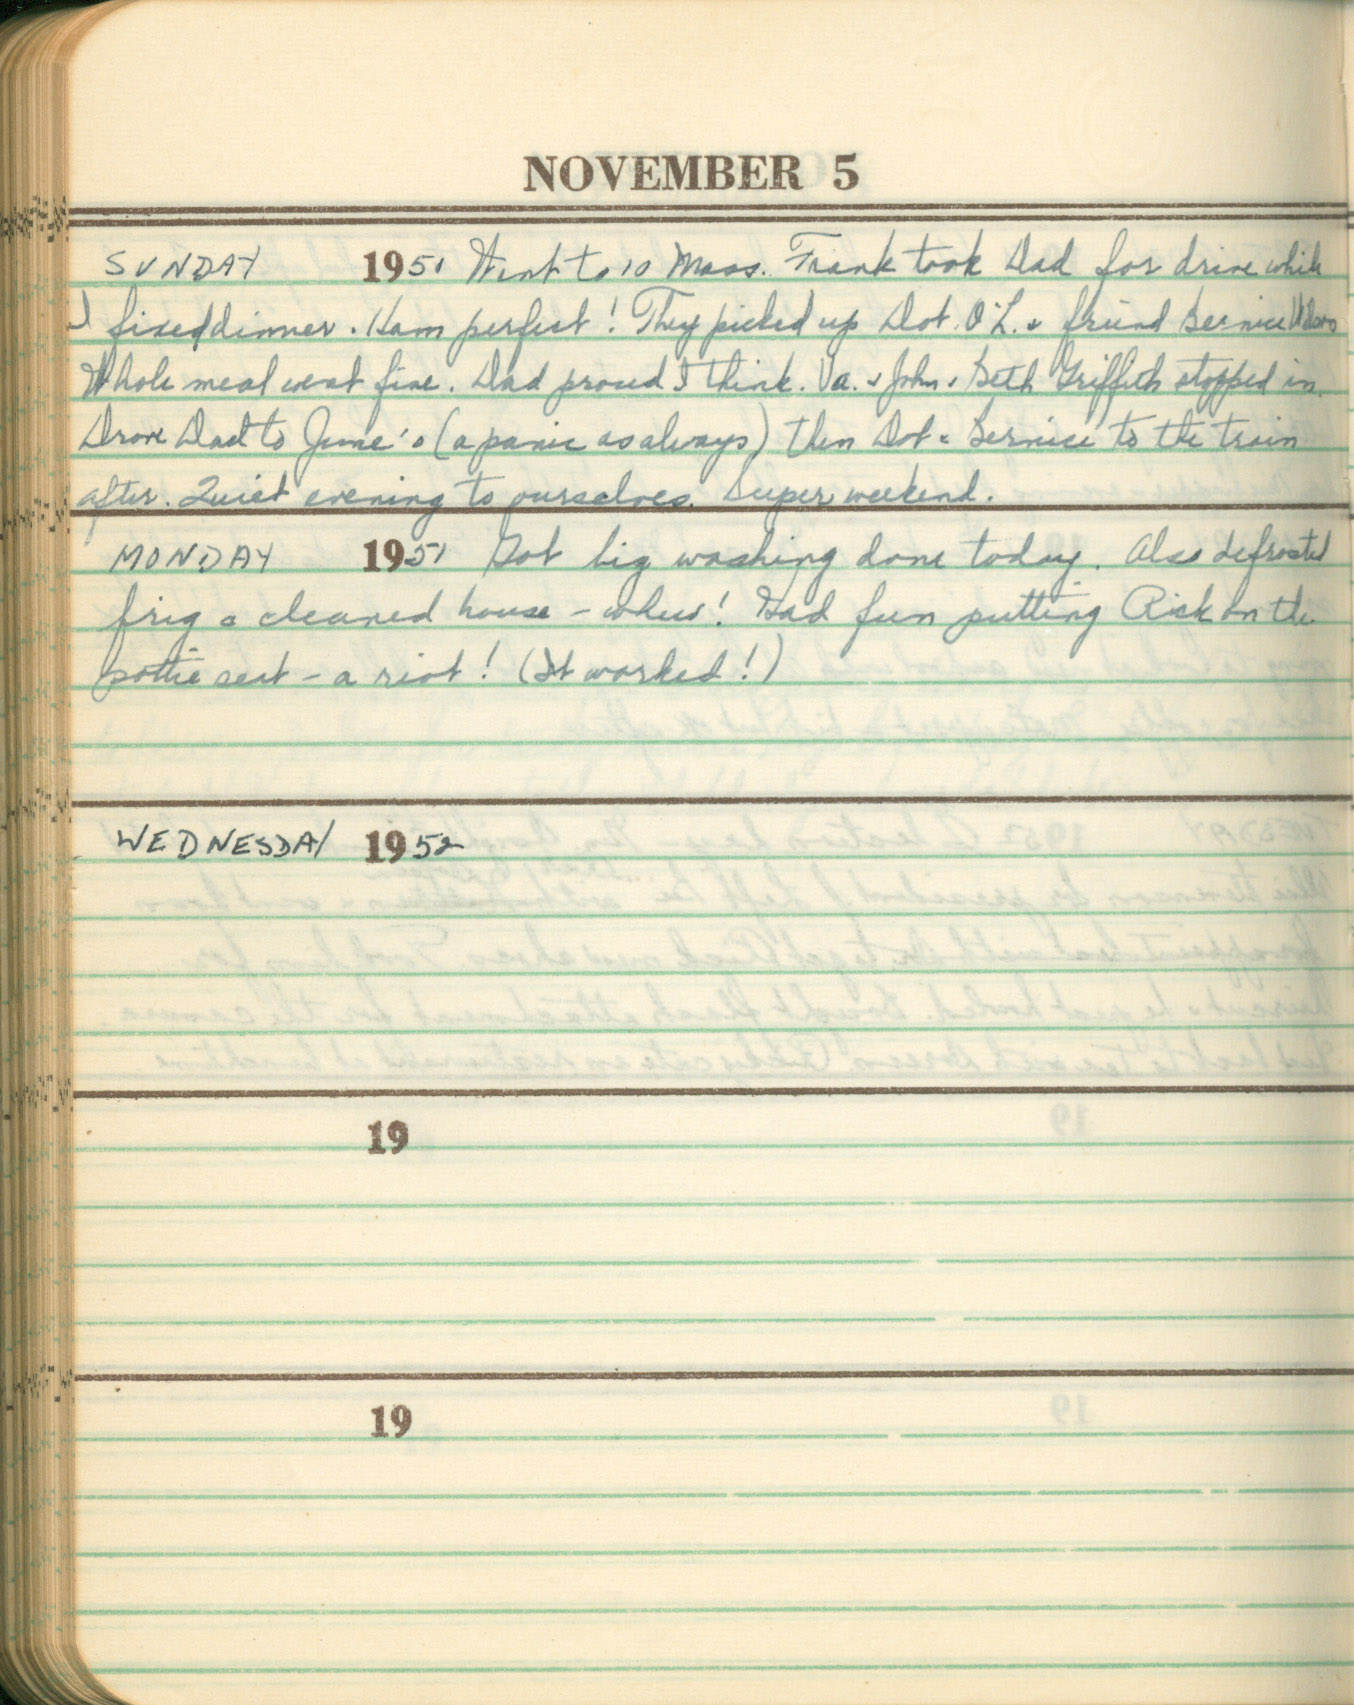 NOVEMBER 5
SUNDAY 1950 Went to 10 Mass. Frank took Dad for drive while
I fixed dinner. Ham perfect! They picked up Dot. O'L. & friend Bernice
Whole meal went fine. Dad proud I think. Va. & John & Beth Griffith stopped in.
Drove Dad to June's (a panic as always) then Dot & Bernice to the train
after. Quiet evening to ourselves. Super weekend.
MONDAY 1951 Got big washing done today. Also defrosted
frig & cleaned house - whew! Had fun putting Rick on the
pottie seat - a riot! (It worked!)
WEDNESDAY 1952
19
19